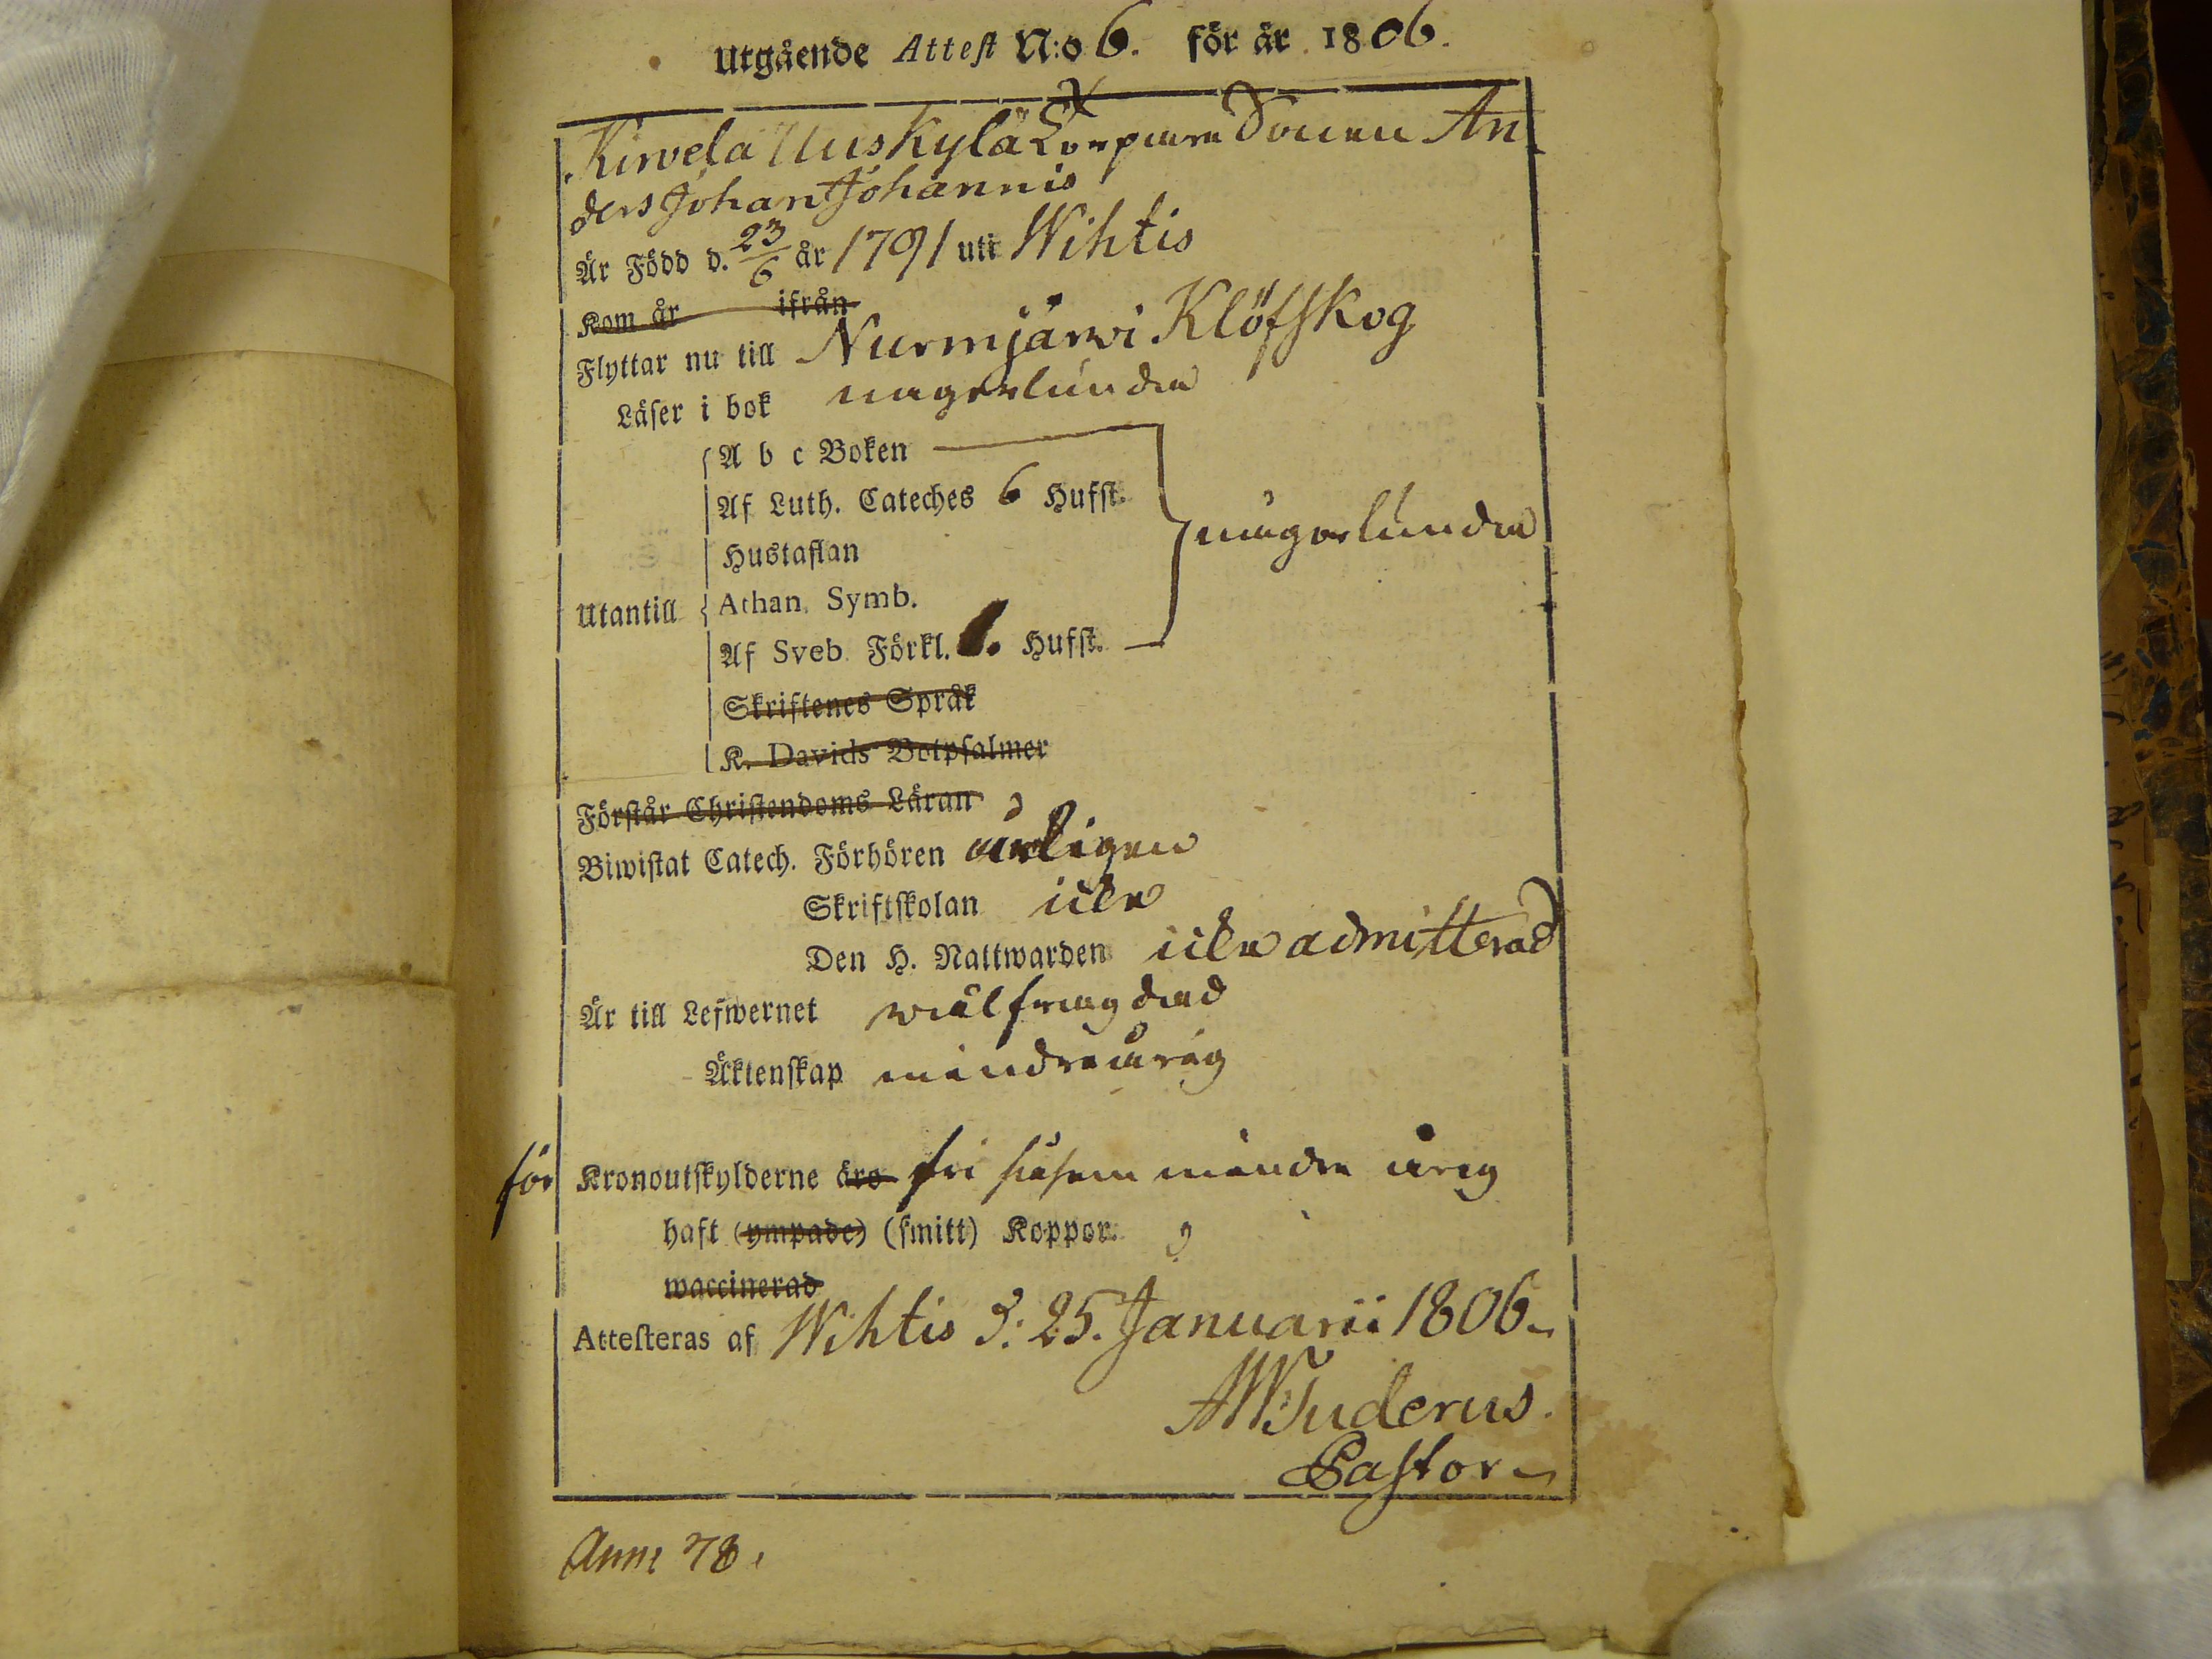 Utgående Attest N:o 6. för år 1806.
Kirvela Uuskylä Torpare Sonen An
ders Johan Johannis
Är Född d. 23/6 år 1791 uti Wihtis
Kom år ifrån
Flyttar nu till Nurmjärvi Klöfskog
Läser i bok någorlunda
A b c Boken
Af Luth. Cateches 6 Hufst.
någorlunda
Hustaflan
Utantill Athan. Symb.
Af Sveb. Förkl. Hufst.
Skriftenes Språk
K. Davids Botpsalmer
Förstår Christendoms Läran
Biwistat Catech. Förhören årligen
Skriftskolan icke
Den H. Nattwarden icke admitterad
Är till Lefwernet wälfrägdad
Äktenskap minderårig
för Kronoutskylderne äro fri såsom minder årig
haft (ympade) (smitt) Koppor.
waccinerad
Attesteras af Wihtis d: 25. Januarii 1806
AWTuderus.
Pastor
Ann: 78.